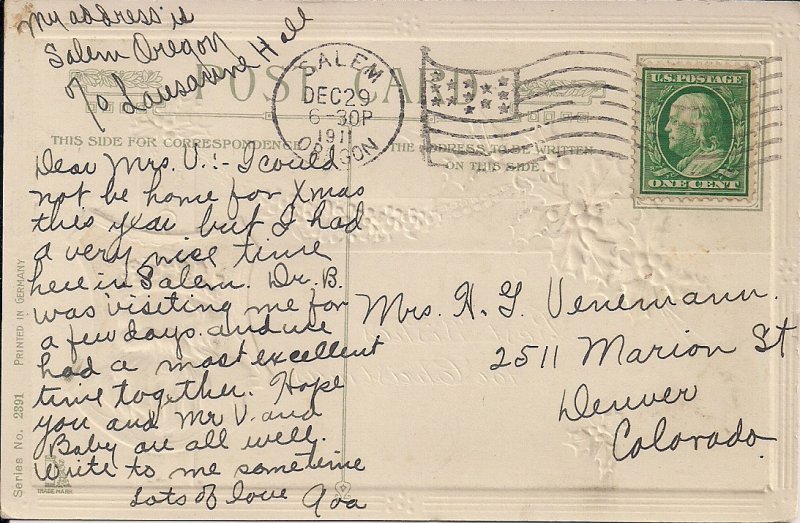 My address is
Salem Oregon
℅ Lausanne Hall
POST CARD
SALEM
DEC 29
6-30P
191
OREGON
U.S. POSTAGE
ONE CENT
THIS SIDE FOR CORRESPONDENCE
THE ADDRESS TO BE WRITTEN
ON THIS SIDE.
Dear Mrs. V.:- I could
not be home for Xmas
this year but I had
a very nice time
here in Salem. Dr. B.
was visiting me for
a few days and we
had a most excellent
time together. Hope
you and Mr V. and
Baby are all well.
Write to me sometime
Lots of love
Mrs. H. G. Venemann.
2511 Marion St
Denver
Colorado.
Series No. 2391 PRINTED IN GERMANY
TRADE MARK